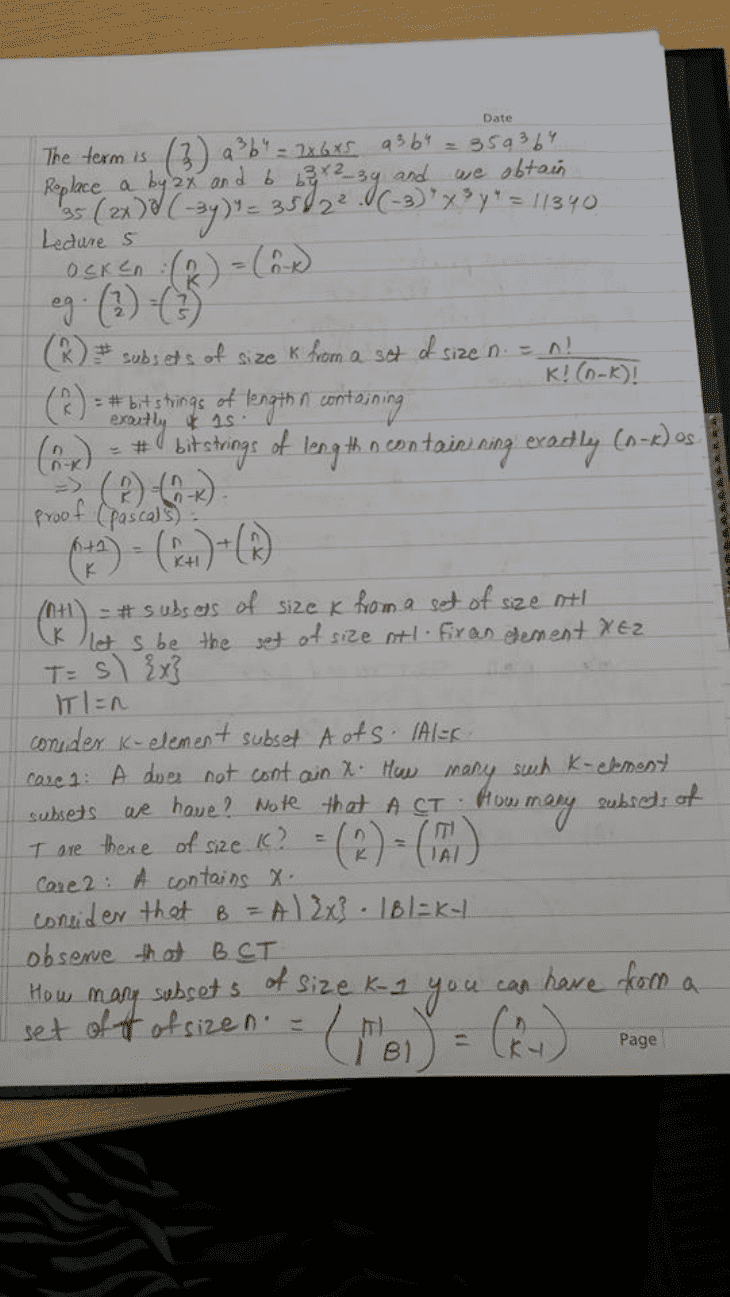 Date
The term is (7 3) a³b⁴ = 7x6x5 / 3x2 a³b⁴ = 35a³b⁴
Replace a by 2x and b by -3y and we obtain
35 (2x) (-3y)⁴ = 35 2² . (-3)⁴ x³y⁴ = 11340
Lecture 5
0≤K≤n : (n K) = (n n-K)
eg. (7 2) = (7 5)
(n K) = # subsets of size K from a set of size n. = n! / K! (n-K)!
(n K) = # bitstrings of length n containing
exactly K 1s.
(n n-K) = # bitstrings of length n containining exactly (n-K) 0s
=> (n K) = (n n-K).
proof (pascal's) :
(n+1 K) = (n K+1) + (n K)
(n+1 K) = # subsets of size K from a set of size n+1
let S be the set of size n+1. Fix an element X∈2
T = S \ {x}
|T| = n
consider K-element subset A of S. |A|=K.
case 1: A does not contain X. How many such K-element
subsets we have? Note that A ⊆ T. How many subsets of
T are there of size K? = (n K) = (|T| |A|)
Case 2: A contains X.
consider that B = A \ {x} . |B|=K-1
observe that B ⊆ T
How many subsets of size K-1 you can have from a
set of T of size n. = (|T| |B|) = (n K-1)
Page